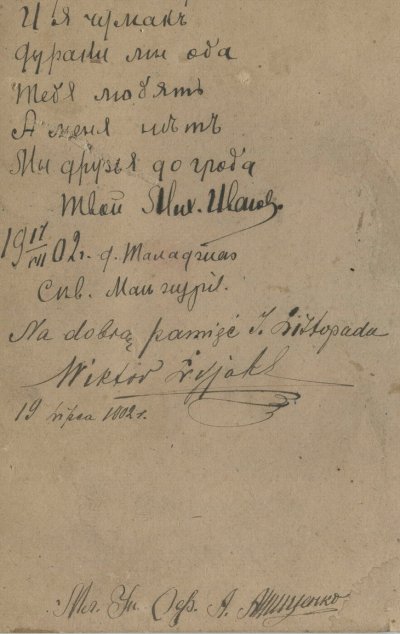 И я чумакъ
Дураки мы оба
Тебя любятъ
А меня нѣтъ
Мы друзья до гроба
Твой Мих. Иванов.
19 17/VII 02 г.
Сѣв. Маньчжурія.
Na dobrą pamięć J. Listopada
Wiktor
19 Lipca 1902 r.
Мл. Ун. Оф. А.